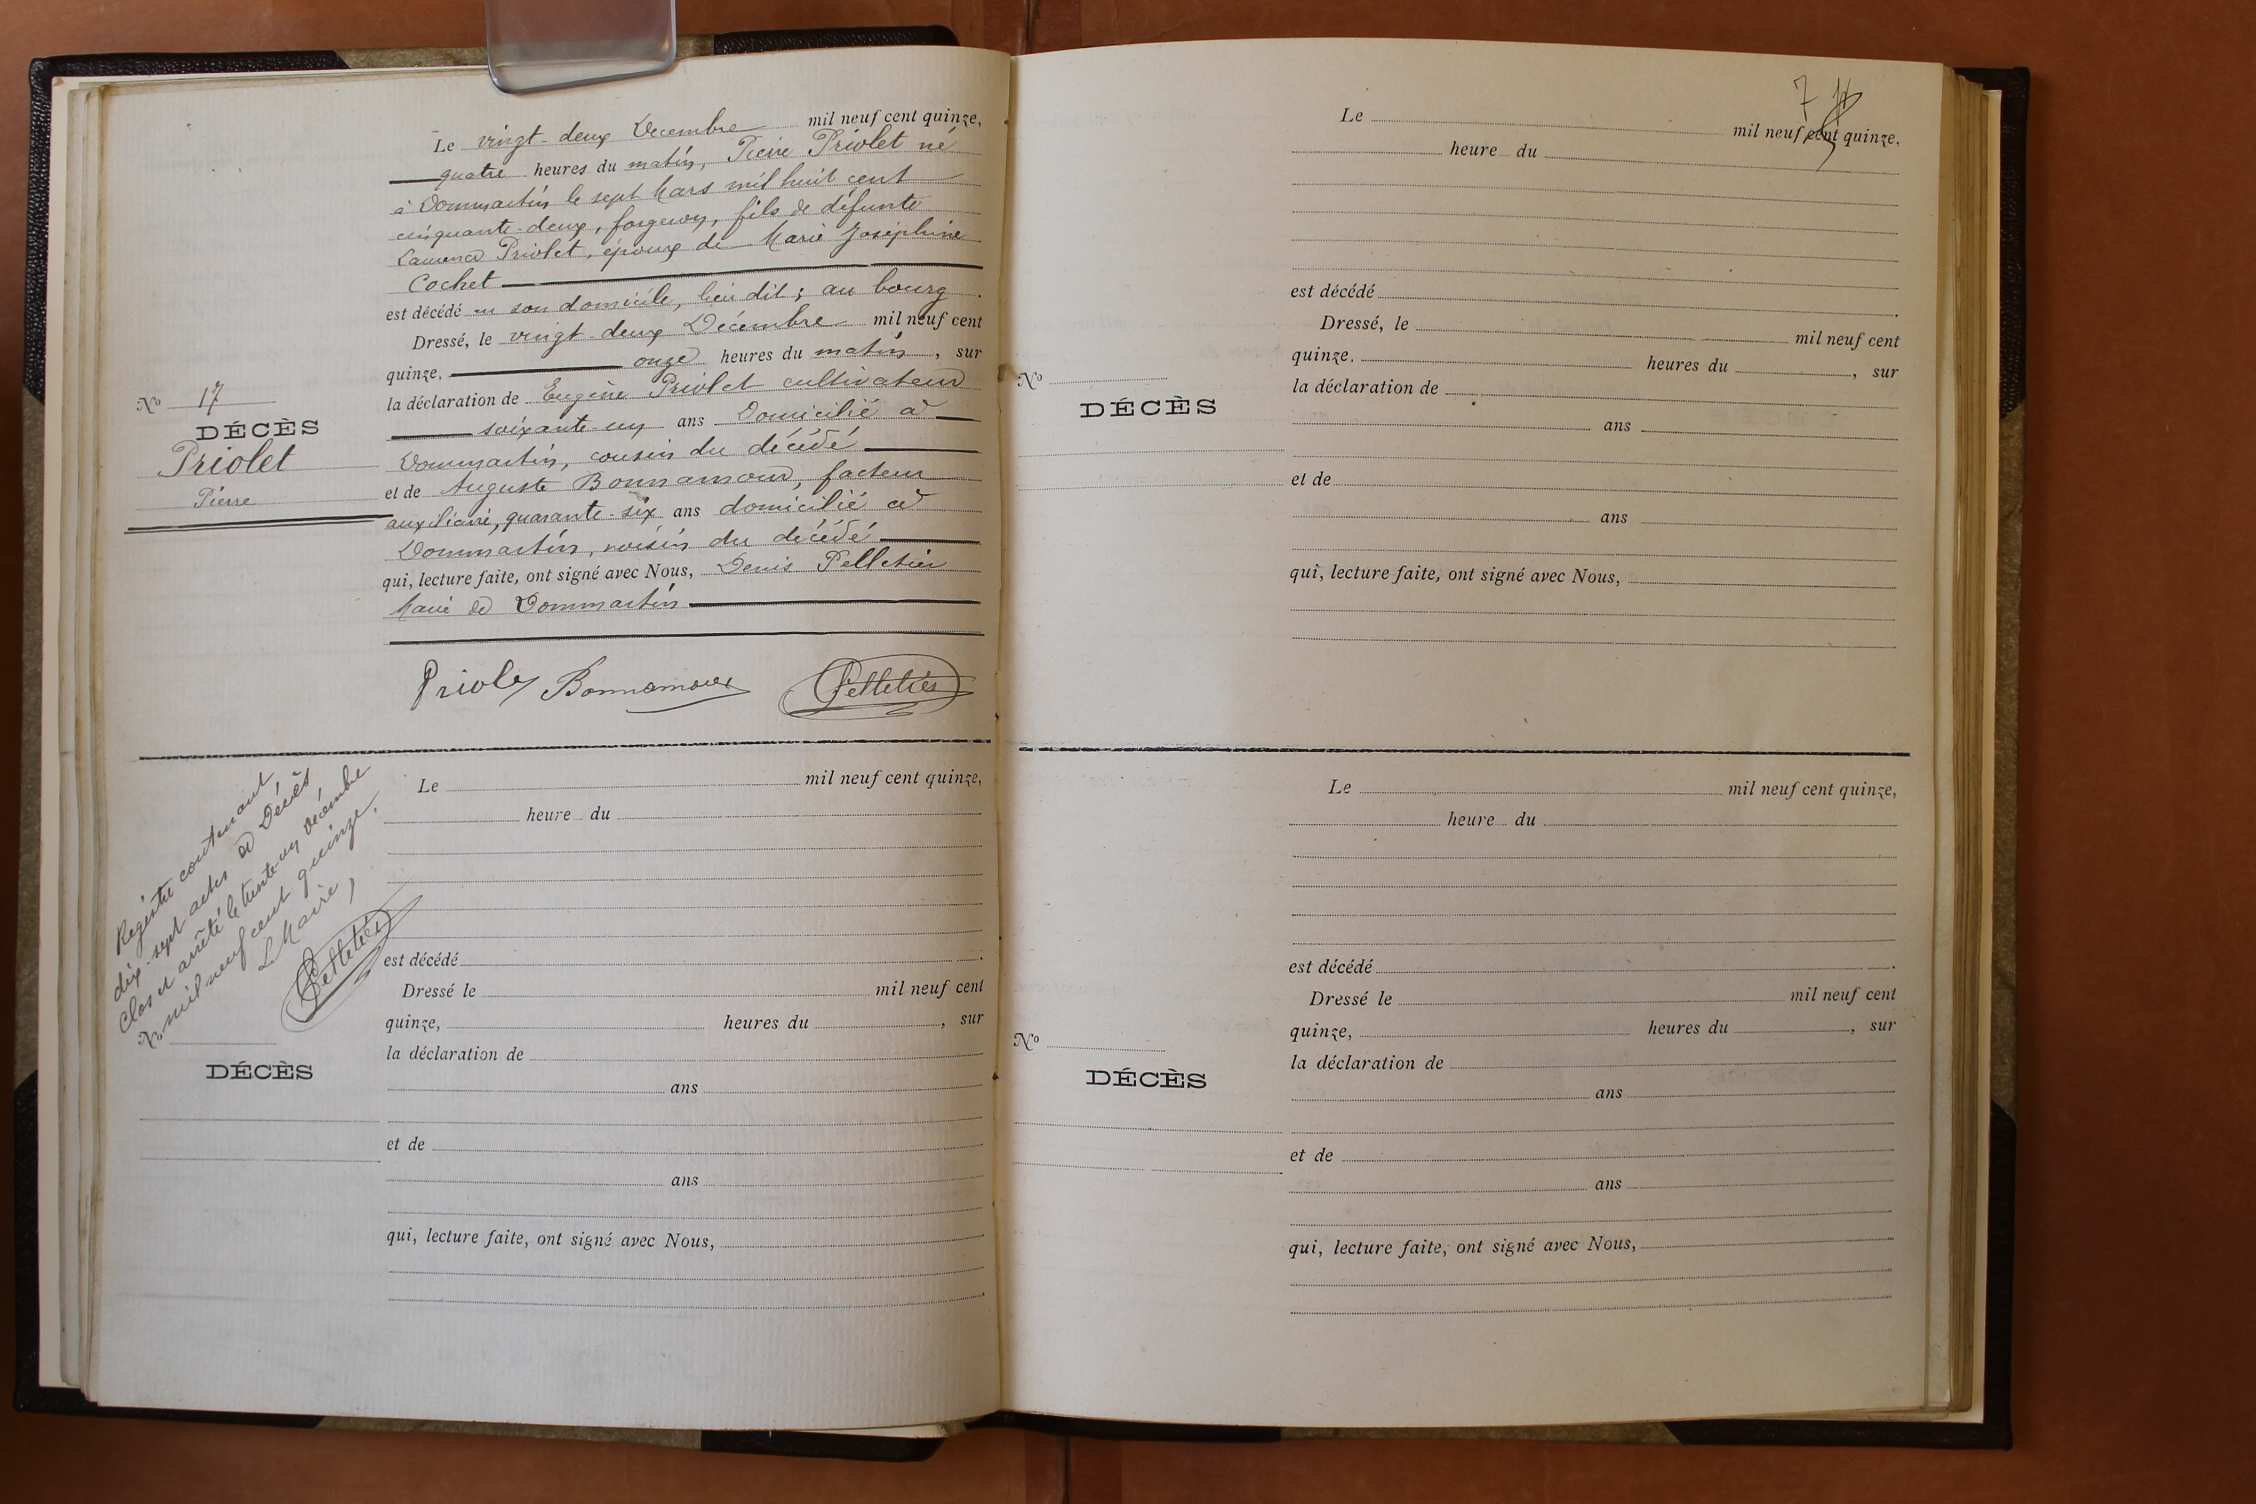 Le vingt-deux Décembre mil neuf cent quinze,
quatre heures du matin, Pierre Priolet né
à Dommartin le sept Mars mil huit cent
cinquante-deux, forgeron, fils de défunte
Laurence Priolet, époux de Marie Joséphine
Cochet
est décédé en son domicile, lieu dit ; au bourg .
Dressé, le vingt-deux Décembre mil neuf cent
quinze, onze heures du matin, sur
la déclaration de Eugène Priolet cultivateur
soixante-un ans Domicilié à
Dommartin, cousin du décédé
et de Auguste Bonnamour, facteur
auxiliaire, quarante-six ans domicilié à
Dommartin, voisin du décédé
qui, lecture faite, ont signé avec Nous, Denis Pelletier
Maire de Dommartin
No 17
DÉCÈS
Priolet
Pierre
Priolet Bonnamour Pelletier
Régistre contenant
dix-sept actes de Décès
Clos et arrêté le trente un décembre
mil neuf cent quinze.
L Maire,
Pelletier
No
DÉCÈS
Le mil neuf cent quinze,
heure du
est décédé .
Dressé le mil neuf cent
quinze, heures du , sur
la déclaration de
ans
et de
ans
qui, lecture faite, ont signé avec Nous,
7
Le mil neuf cent quinze,
heure du
est décédé .
Dressé, le mil neuf cent
quinze, heures du , sur
la déclaration de
ans
et de
ans
qui, lecture faite, ont signé avec Nous,
No
DÉCÈS
Le mil neuf cent quinze,
heure du
est décédé .
Dressé le mil neuf cent
quinze, heures du , sur
la déclaration de
ans
et de
ans
qui, lecture faite, ont signé avec Nous,
No
DÉCÈS